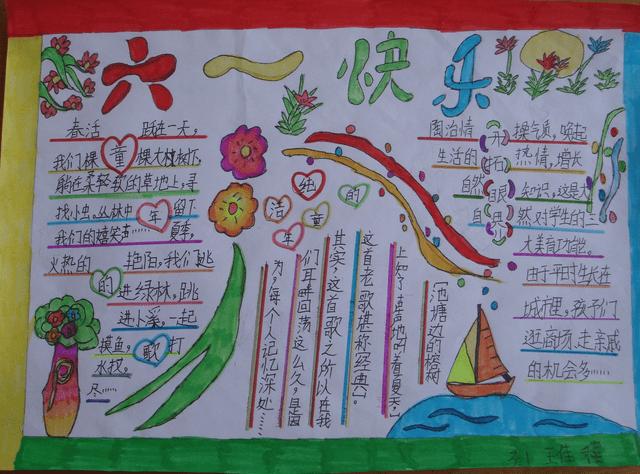 六一快乐
春活 跃在一天,
我们裸 童 棵大树树下,
躺在柔轻软的草地上,寻
找小虫。丛林中 年 留下
我们的嬉笑声…… 夏季,
火热的 艳阳,我们跳
的 进绿林,跳
进小溪,一起
摸鱼, 歌 打
水杈。
尽……
洁纯的童年
〔池塘边的榕树
上知了声声地叫着夏天,〕
这首老歌堪称经典。
其实,这首歌之所以在我
们耳畔回荡这么久,是因
为,每个人记忆深处……
陶冶情 开 操气质,唤起
生活的 拓 热情,增长
自然 眼 知识,这是大
自 界 然对学生的三
大美育功能。
由于平时生长在
城市里,孩子们
逛商场、走亲戚
的机会多……